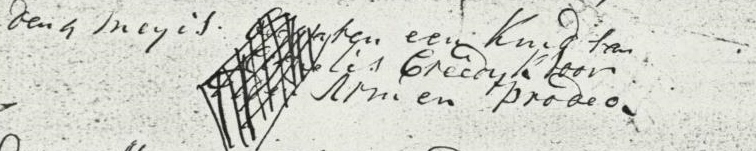 den 9 meyis. een Kind van
Creedyk voor
Armen prodeo.